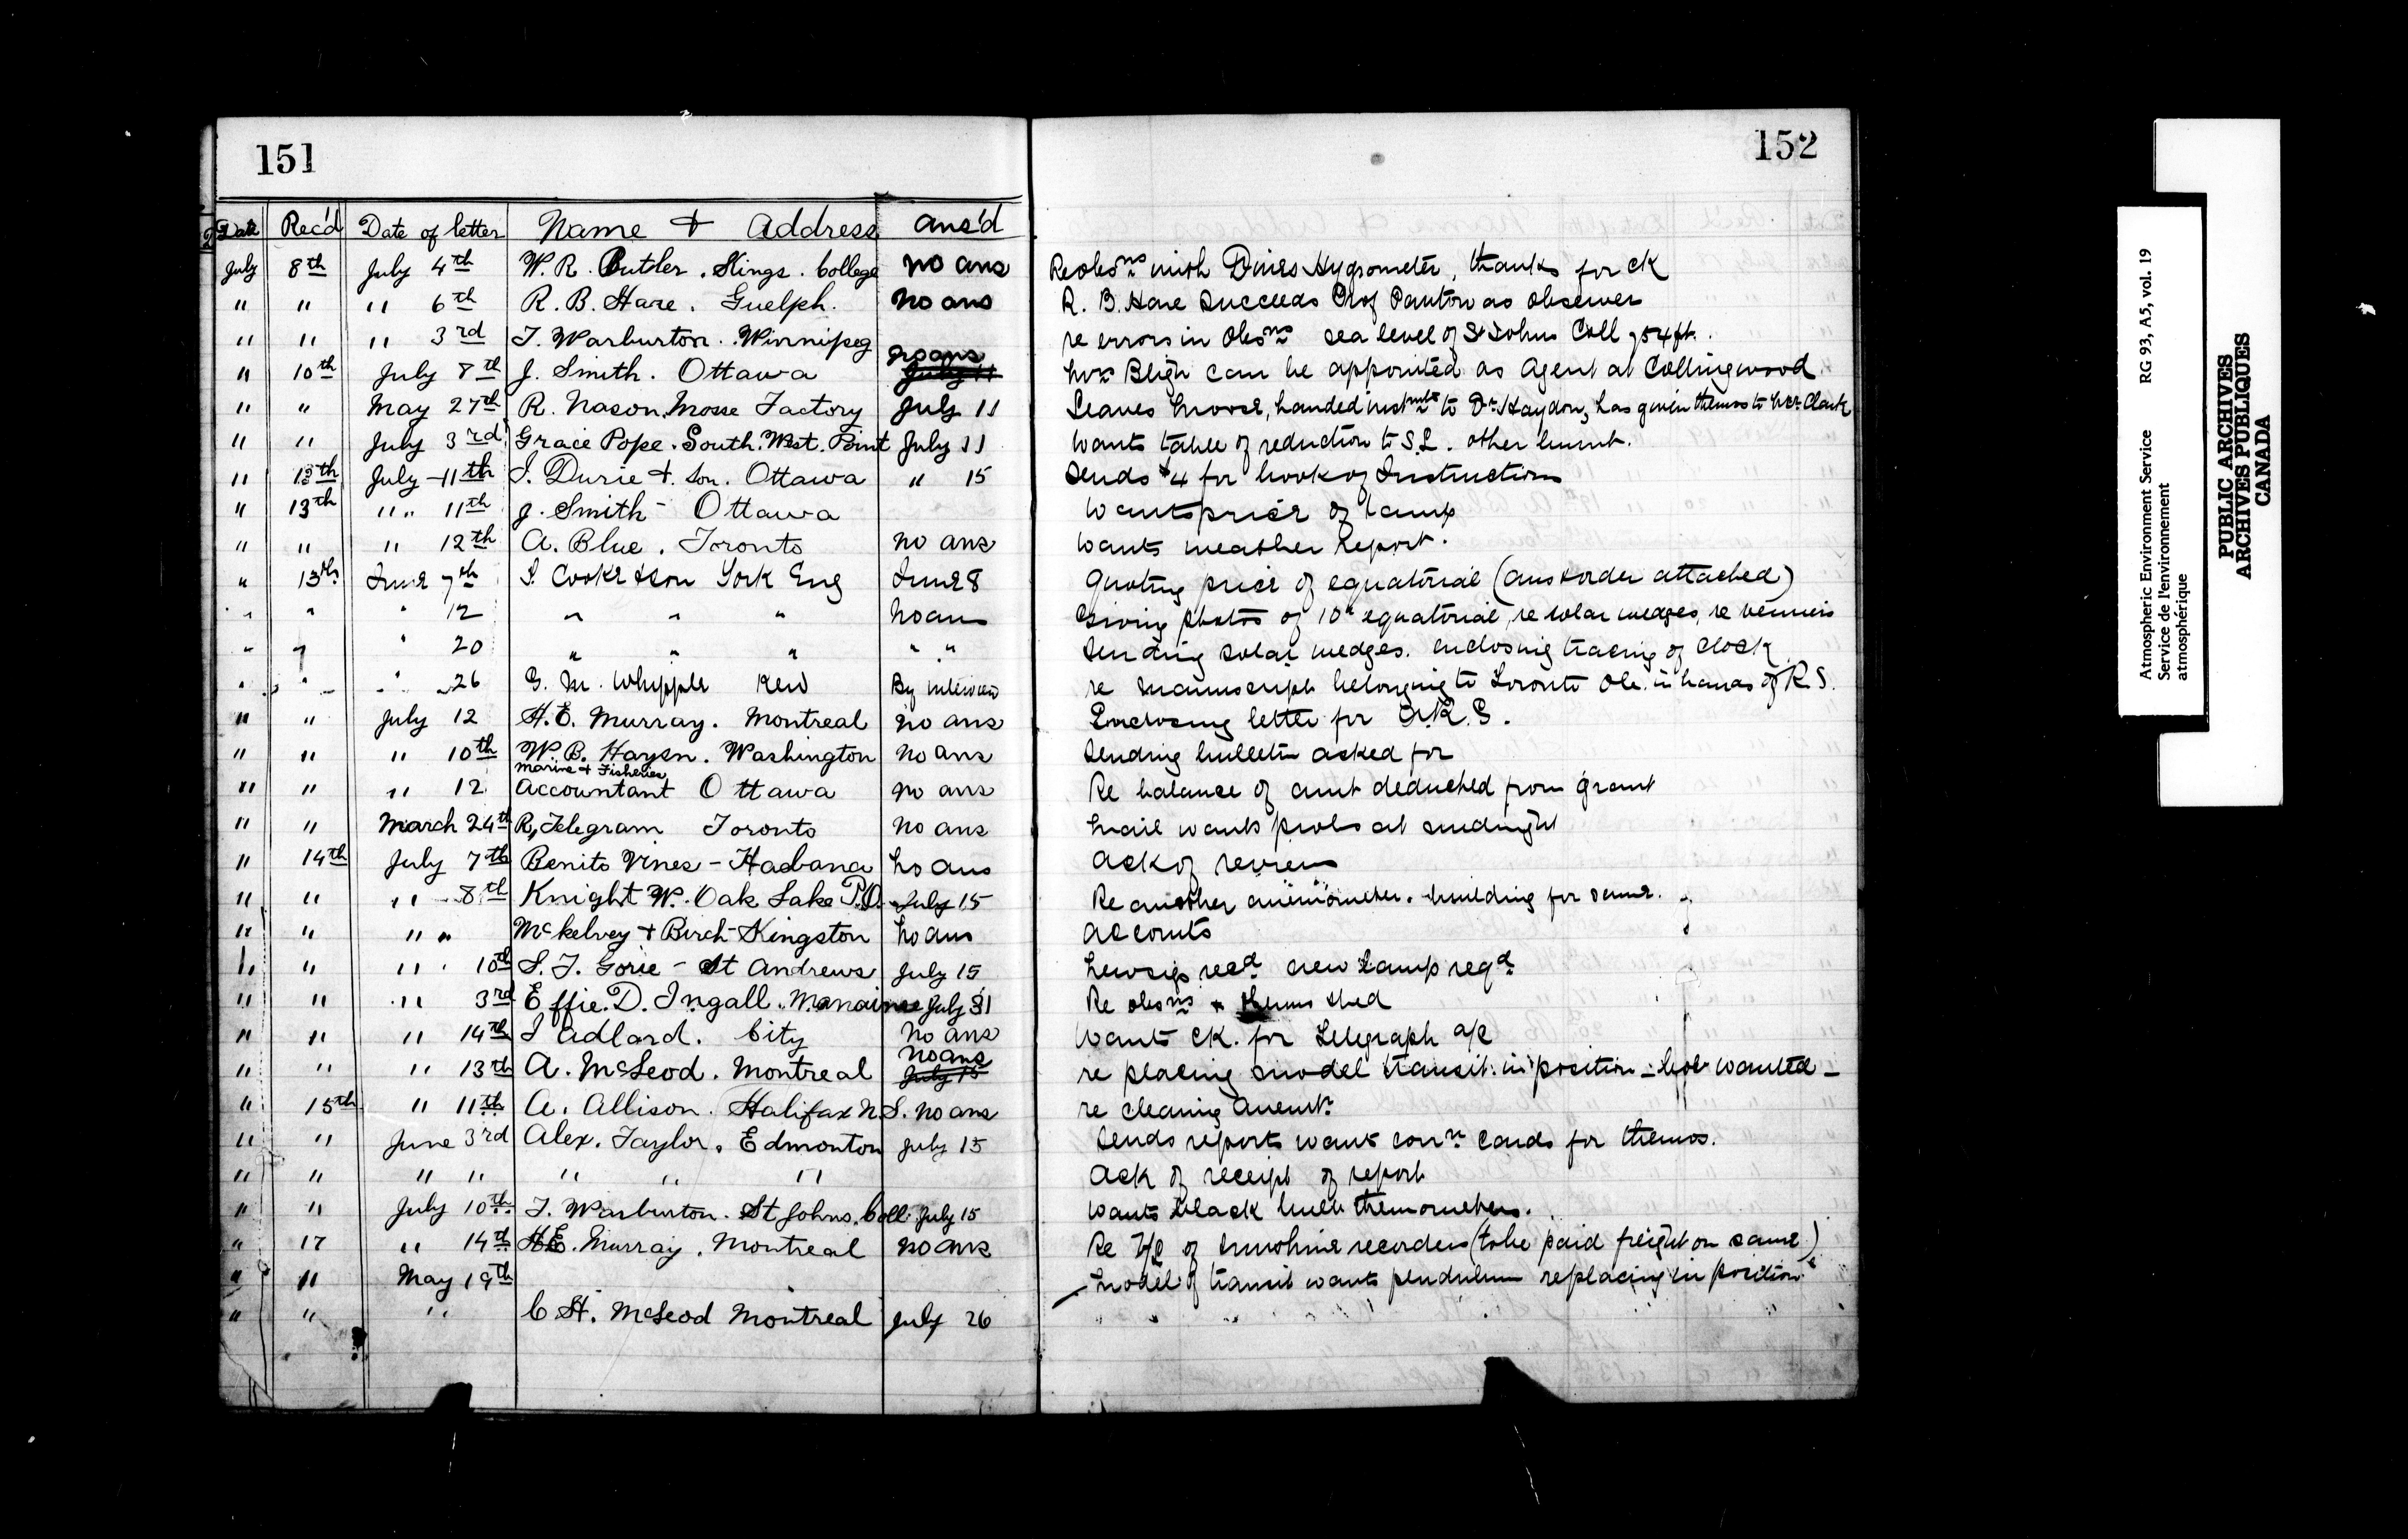 151
Date Rec'd Date of letter Name + Address Ans'd
July 8th July 4th W. R. Butler. Kings. College no ans
" " " 6th R. B. Hare. Guelph. no ans
" " " 3rd T. Warburton. Winnipeg no ans
" 10th July 8th J. Smith. Ottawa July 11
" " May 27th R. Nason. Mosse Factory July 11
" " July 3rd Grace Pope. South. West. Point July 11
" 13th July 11th J. Durie + Son. Ottawa " 15
" 13th " " 11th J. Smith - Ottawa
" " " 12th A. Blue. Toronto no ans
" 13th June 7th T. Cooke & Son York Eng June 28
" " " 12 " " " no ans
" " " 20 " " " " "
" " " 26 G. M. Whipple Kew By interview
" " July 12 H. E. Murray. Montreal no ans
" " " 10th W. B. Hazen. Washington no ans
Marine + Fisheries
" " " 12 Accountant Ottawa no ans
" " March 24th R, Telegram Toronto no ans
" 14th July 7th Benito Vines - Habana no ans
" " " 8th Knight W. Oak Lake P.O. July 15
" " " " McKelvey + Birch - Kingston no ans
" " " 10th S. J. Gorie - St Andrews July 15
" " " 3rd Effie. D. Ingall. Manainse July 31
" " " 14th J Adlard. City no ans
no ans
" " " 13th A. McLeod. Montreal July 15
" 15th " 11th A. Allison. Halifax N.S. no ans
" " June 3rd Alex. Taylor. Edmonton July 15
" " " " " " "
" " July 10th T. Warburton. St Johns. Coll. July 15
" 17 " 14th H.E. Murray. Montreal no ans
" " May 19th
" " " C H. McLeod Montreal July 26
152
Re obsns with Dines Hygrometer, thanks for ck
R. B. Hare succeeds Prof Panton as observer
re errors in Obsns sea level of St Johns Coll 754 ft.
Mr Bligh can be appointed as Agent at Collingwood
Leaves Moose, handed instmts to Dr Haydon, has given thermos to Mr Clark
Wants table of reduction to S.L. other
Sends $4 for book of Instructions
Wants price of lamp
Wants weather Report.
Quoting price of equatorial (ans & order attached)
Giving photos of 10" equatorial, re solar wedges, re verniers
Sending solar wedges. enclosing tracing of clock
re manuscript belonging to Toronto Obs. in hands of R S.
Enclosing letter for
Sending bulletin asked for
Re balance of amt deducted from grant
Mail wants probs at midnight
Ack of review
Re another anemometer. building for same.
Accounts
recd new lamp reqd
Re obsns + therms shed
Wants ck. for Telegraph a/c
re placing model transit in position - wanted -
re cleaning Anemtr
Sends reports want corrn cards for thermos.
Ack of receipt of report
Wants black bulb thermometers.
Re of sunshine recorders (to be paid freight on same)
Model of transit wants pendulum replacing in position
" " " " "
Atmospheric Environment Service RG 93, A5, vol. 19
Service de l'environnement
atmosphérique
PUBLIC ARCHIVES
ARCHIVES PUBLIQUES
CANADA